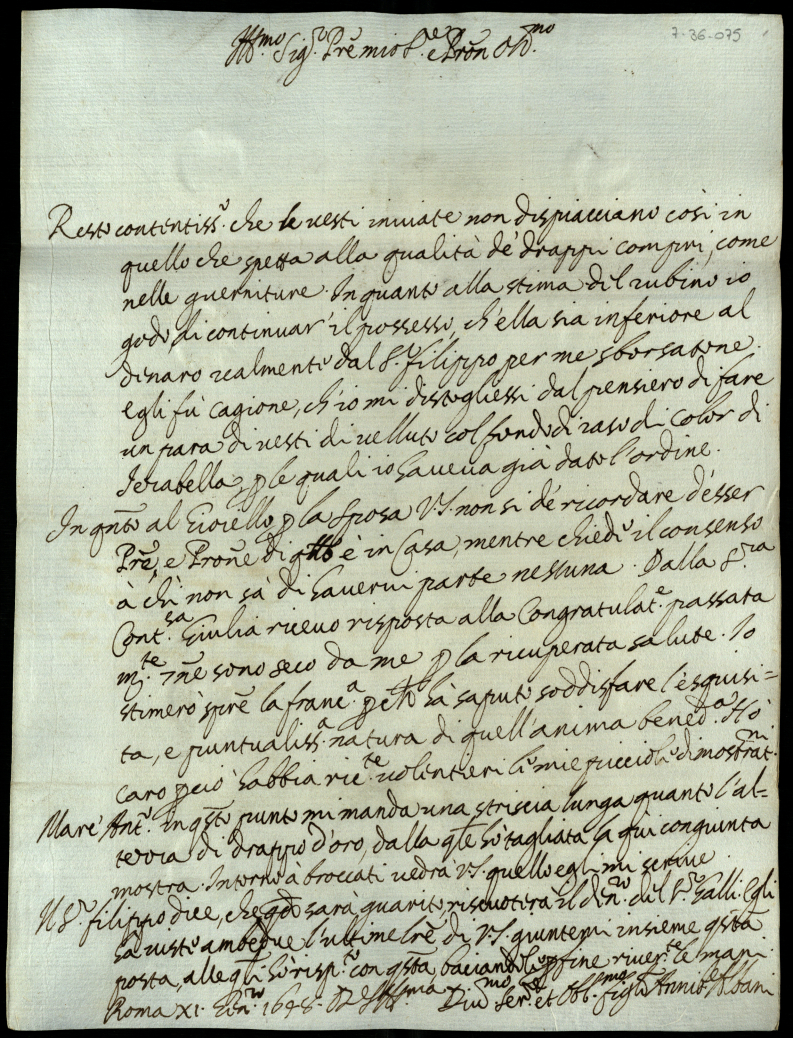 7-36-075
Ill.mo Sig.r P̃re mio S.re e Prõn Oss.mo
Resto contentiss.o che le vesti inviate non dispiacciano così in
quello che spetta alla qualità de' drappi compri, come
nelle guerniture. In quanto alla stima del rubino io
godo di continuar' il possesso, ch'ella sia inferiore al
dinaro realmente dal S.r Filippo per me sborsatone.
egli fù cagione, ch'io mi distogliessi dal pensiero di fare
un para di vesti di velluto col fondo di raso di color di
Isabella, p le quali io haveva già dato l'ordine.
In qñto al Gioiello p la Sposa V.S. non si dè ricordare d'esser
P̃re, e Prõne di è in Casa, mentre chiede il consenso
à chi non sà di havervi parte nessuna. Dalla S.ra
Cont.sa Giulia ricevo risposta alla Congratulat.e passata
seco da me p la ricuperata salute. Io
stimerò sp̃re la franc.a p hà saputo soddisfare l'esquisi=
ta, e puntualiss.a natura di quell'anima bened.a Hò
caro p ciò habbia ric.te volentieri le mie picciole dimostrat.ni
Marc' Ant.o in q̃sto punto mi manda una striscia lunga quanto l'al=
tezza di drappo d'oro, dalla q̃le hò tagliata la qui congiunta
mostra. Intorno à broccati vedrà V.S. quello egli mi scrive
Il S.r Filippo dice, che q̃do sarà guarito, riscuoterà il den.ro del S.r Galli. Egli
hà viste ambedue l'ultime lr̃e di V.S. giuntemi insieme q̃sta
posta, alle q̃li hò risp.to con q̃sta, baciandole p fine river.te le mani
Roma XI. 1648. D. V.S. Ill.ma Div.mo Ser.re et Obb.mo figlio Annib.e Albani